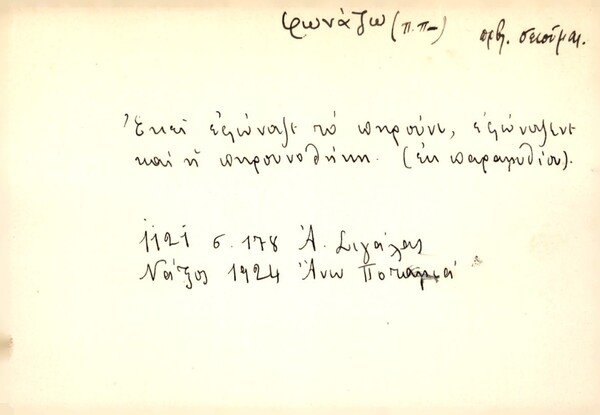 φωνάζω (π.π-) πβ. σειούμαι.
Ἐκεῖ ἐφώναξε τὸ πηρούνι, ἐφώναξενε
καὶ ἡ πηρουνοθήκη. (ἐκ παραμυθίου).
1121 σ. 178 Ἀ. Σιγάλας
Νάξος 1924 Ἄνω Ποταμιά